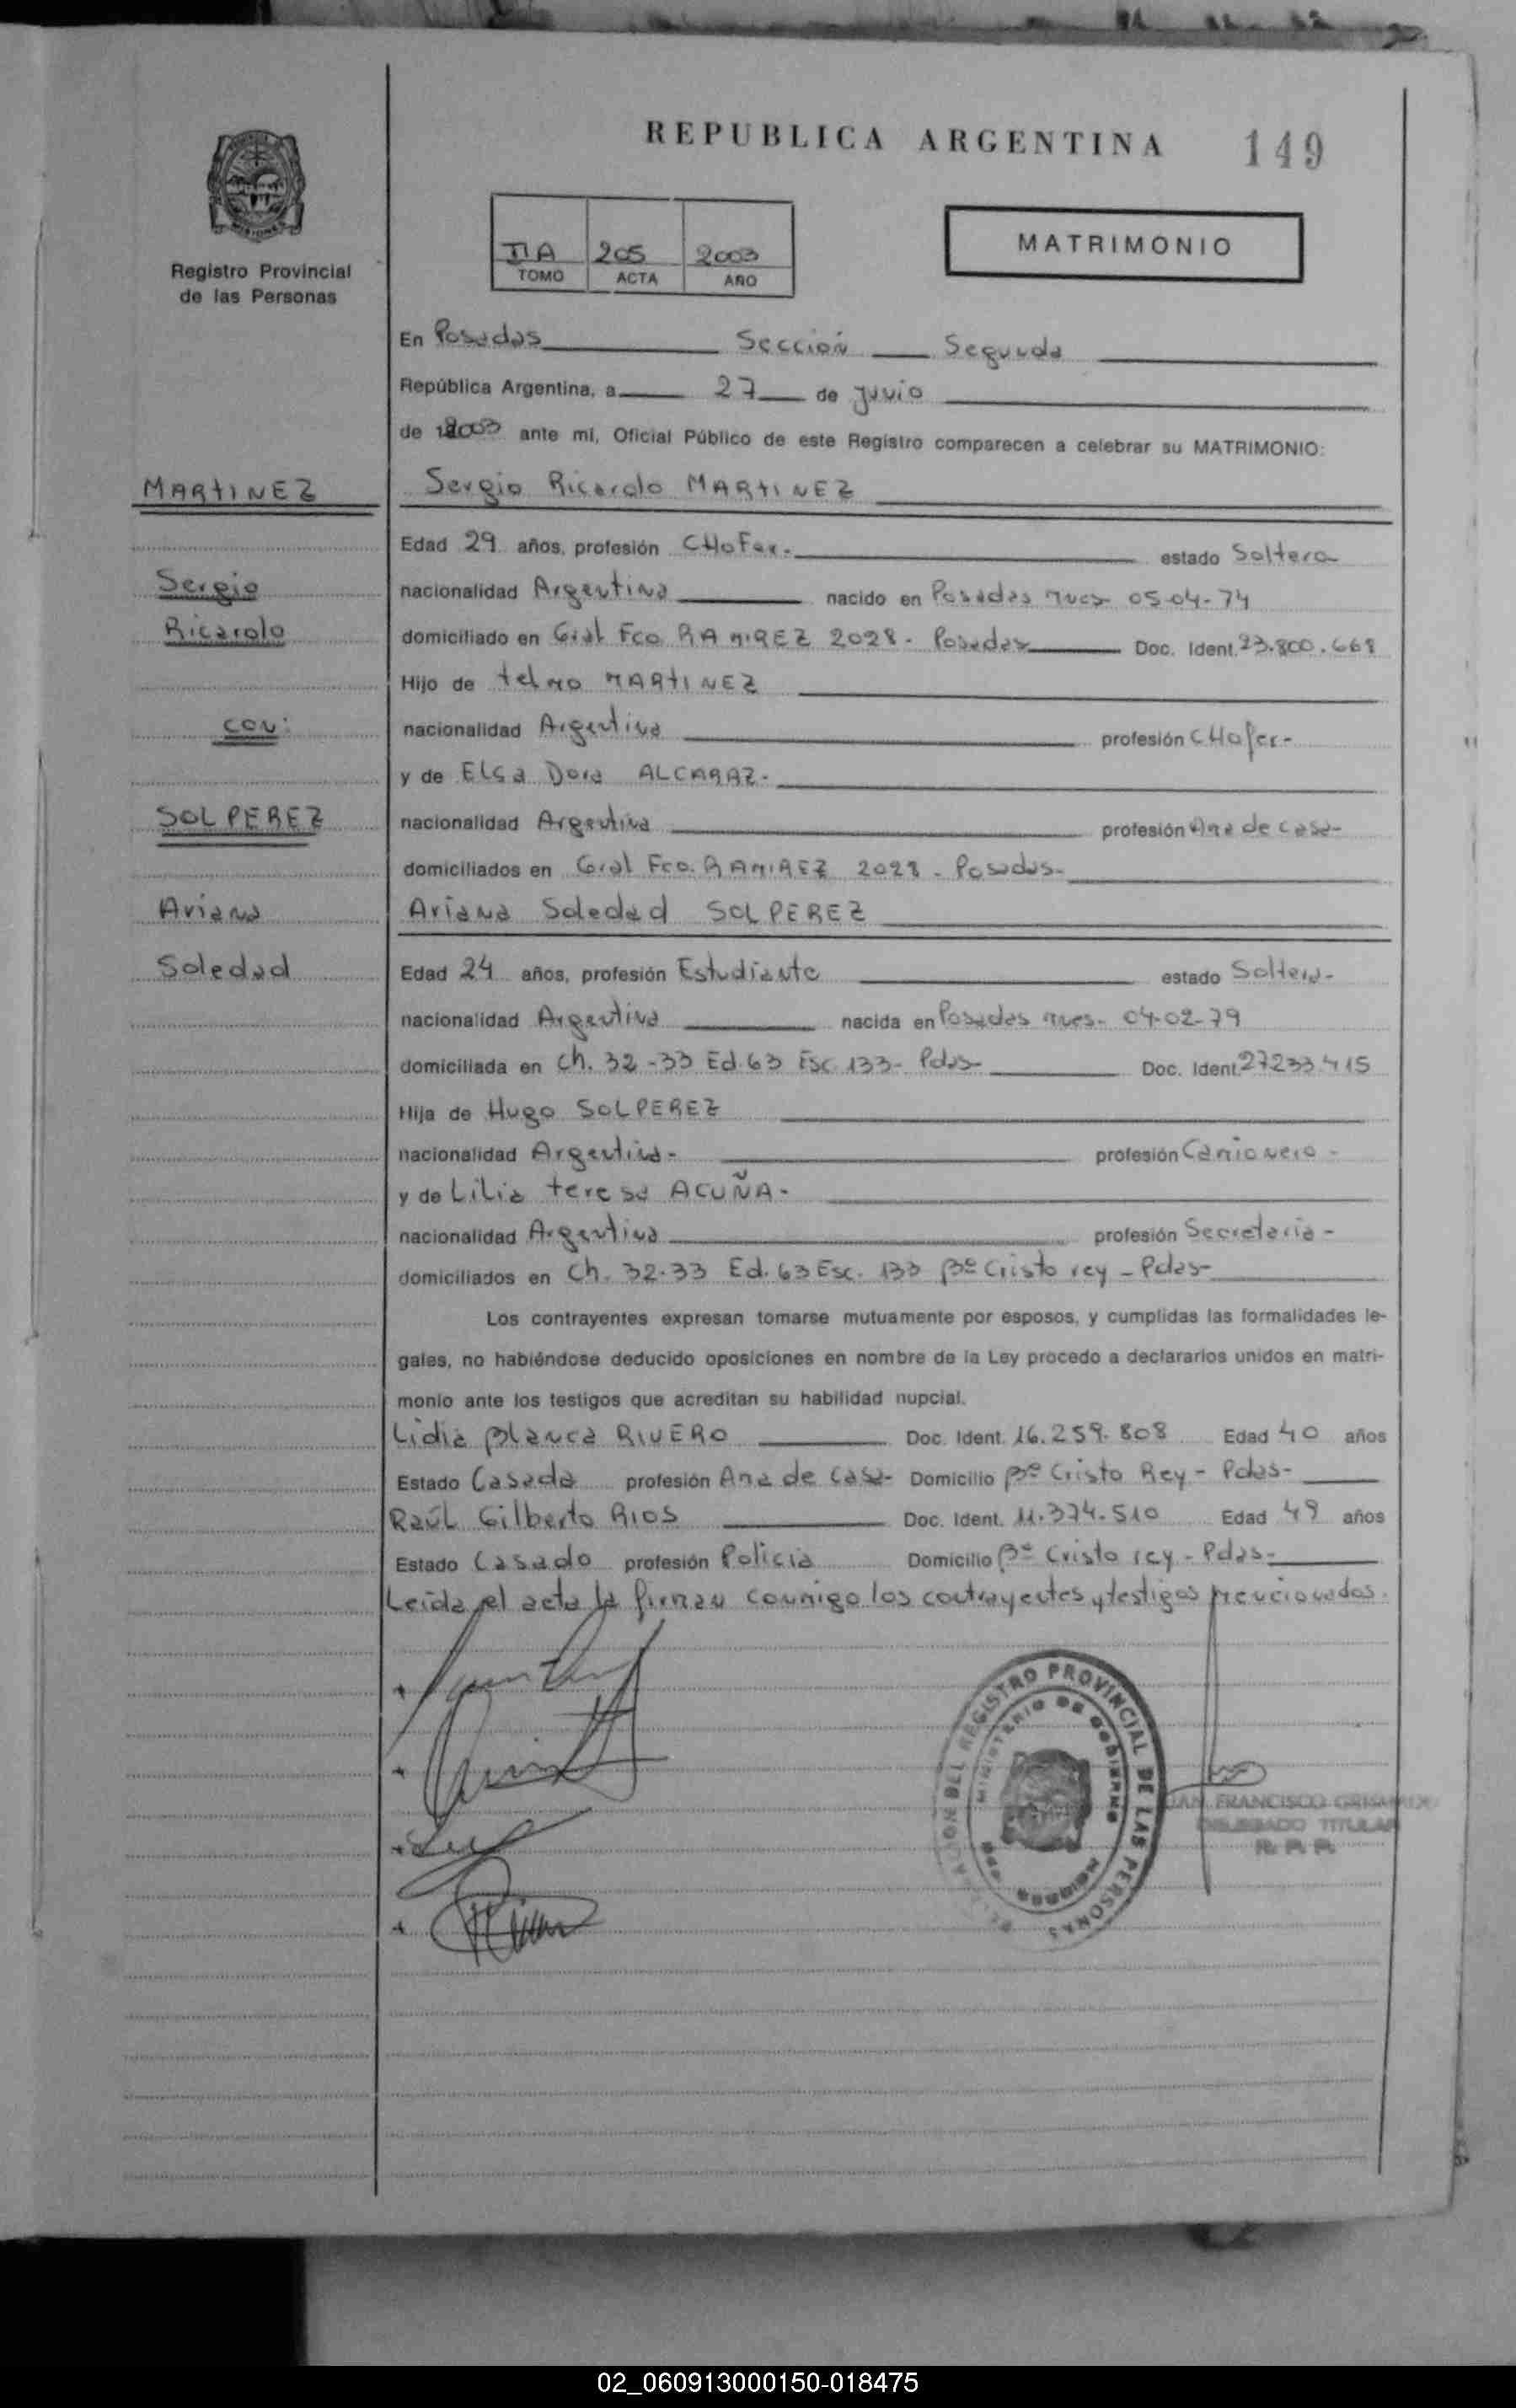 REPUBLICA ARGENTINA 149
MATRIMONIO
Registro Provincial
de las Personas
IIA 205 2003
TOMO ACTA AÑO
En Posadas Sección Segunda
República Argentina, a 27 de junio
de 2003 ante mí, Oficial Público de este Registro comparecen a celebrar su MATRIMONIO:
MARTINEZ
Sergio Ricardo MARTINEZ
Edad 29 años, profesión CHOFer.- estado Soltero
Sergio
nacionalidad Argentina nacido en Posadas Mnes 05-04-74
Ricardo
domiciliado en Gral Fco RAMIREZ 2028 - Posadas Doc. Ident. 23.800.668
Hijo de telmo MARTINEZ
con:
nacionalidad Argentina profesión CHofer-
y de Elsa Dora ALCARAZ-
SOLPEREZ
nacionalidad Argentina profesión Ama de casa-
domiciliados en Gral Fco. RAMIREZ 2028 - Posadas-
Ariana
Ariana Soledad SOLPEREZ
Soledad
Edad 24 años, profesión Estudiante estado Soltera-
nacionalidad Argentina nacida en Posadas Mnes- 04-02-79
domiciliada en Ch. 32-33 Ed. 63 Esc. 133- Pdas- Doc. Ident. 27233.415
Hija de Hugo SOLPEREZ
nacionalidad Argentina- profesión Camionero-
y de Lilia teresa ACUÑA-
nacionalidad Argentina profesión Secretaria-
domiciliados en Ch. 32-33 Ed. 63 Esc. 133 Bº Cristo rey - Pdas-
Los contrayentes expresan tomarse mutuamente por esposos, y cumplidas las formalidades le-
gales, no habiéndose deducido oposiciones en nombre de la Ley procedo a declararlos unidos en matri-
monio ante los testigos que acreditan su habilidad nupcial.
Lidia Blanca RIVERO Doc. Ident. 16.259.808 Edad 40 años
Estado Casada profesión Ama de Casa- Domicilio Bº Cristo Rey - Pdas-
Raúl Gilberto RIOS Doc. Ident. 11.374.510 Edad 49 años
Estado Casado profesión Policia Domicilio Bº Cristo rey - Pdas-
Leida el acta la firman conmigo los contrayentes y testigos mencionados.
REGISTRO PROVINCIAL DE LAS PERSONAS
MINISTERIO DE GOBIERNO
MISIONES
FRANCISCO
DELEGADO TITULAR
R. P. P.
02_060913000150-018475